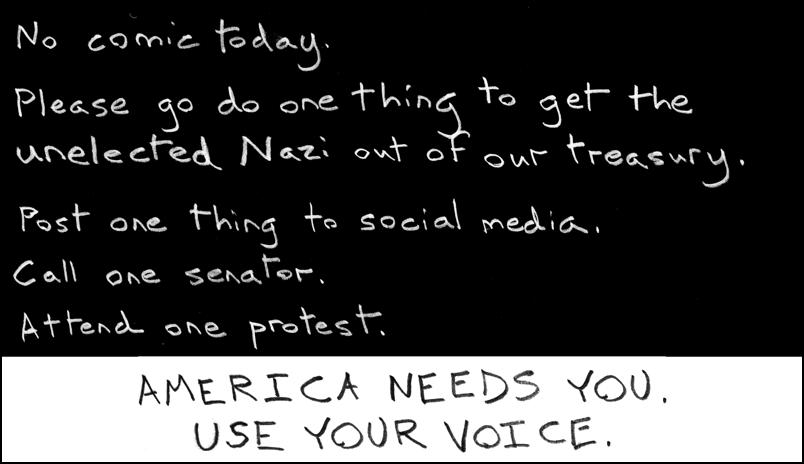 No comic today.
Please go do one thing to get the
unelected Nazi out of our treasury.
Post one thing to social media.
Call one senator.
Attend one protest.
AMERICA NEEDS YOU.
USE YOUR VOICE.